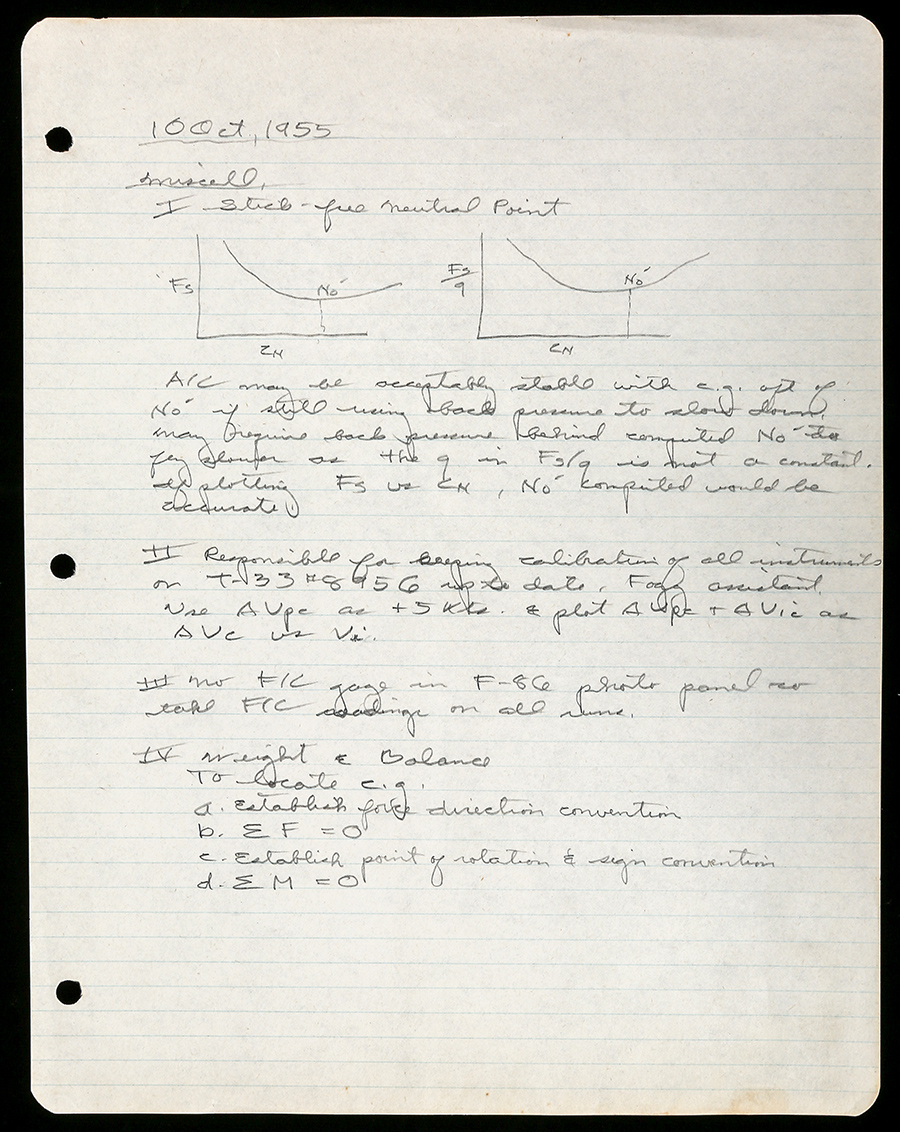 10 Oct, 1955
Miscell.
I Stick-free Neutral Point
Fs No' CN
Fs/q No' CN
A/C may be acceptably stable with c.g. aft of
No' if still using back pressure to slow down.
May require back pressure behind computed No' to
fly slower as the q in Fs/q is not a constant.
If plotting Fs vs CN, No' computed would be
accurate.
II Responsible for keeping calibration of all instruments
on T-33 #8956 up to date, assistant.
Use ΔVpc as +5 Kts. & plot ΔVpc + ΔVic as
ΔVc vs Vi.
III No F/C gage in F-86 photo panel so
take F/C readings on all runs.
IV Weight & Balance
To locate c.g.
a. Establish force direction convention
b. Σ F = 0
c. Establish point of rotation & sign convention
d. Σ M = 0